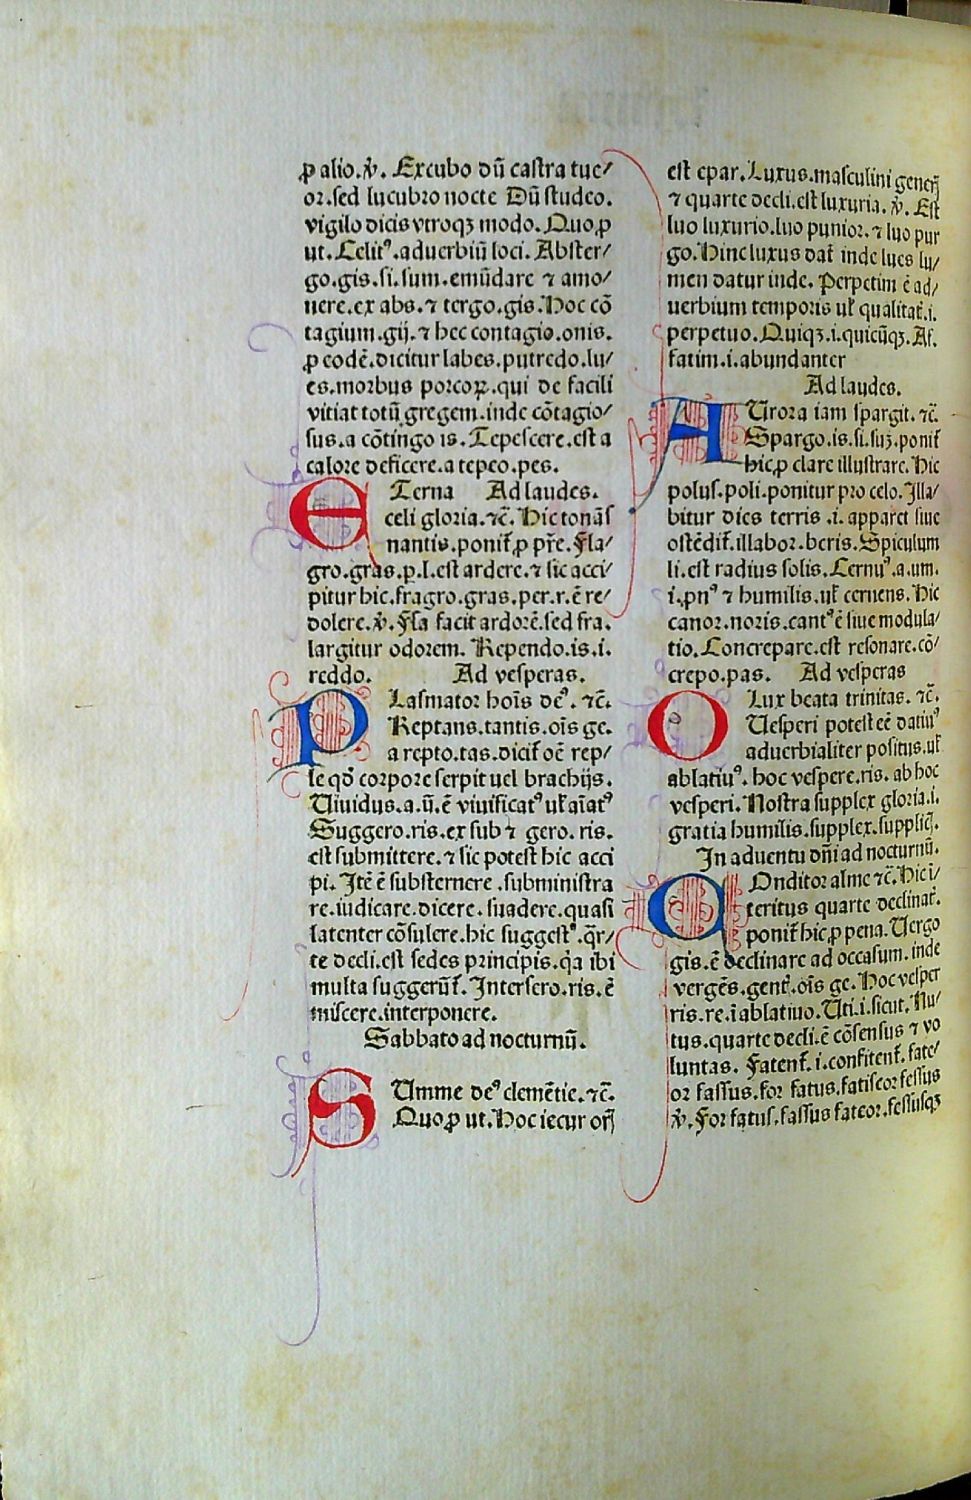 ꝓ alio.v̉. Excubo dū caſtra tue⸗
or.ſed lucubro nocte Dū ſtudeo.
vigilo dicis vtroqꝫ modo. Quo.ꝓ
ut. Celitꝰ.aduerbiū loci. Abſter⸗
go.gis.ſi.ſum.emūdare ⁊ amo⸗
uere.ex abs.⁊ tergo.gis.Hoc cō
tagium.gij.⁊ hec contagio.onis.
ꝓ eodē.dicitur labes.putredo.lu⸗
es.morbus porcoꝝ.qui de facili
vitiat totū gregem.inde cōtagio⸗
ſus.a cōtingo is. Tepeſcere.eſt a
calore deficere.a tepeo.pes.
ETerna Ad laudes.
celi gloria.⁊c̄. Hic tonāſ
nantis.ponit̉.ꝓ pr̄e. Fla⸗
gro.gras.p.l.eſt ardere.⁊ ſic acci⸗
pitur hic.fragro.gras.per.r.ē re⸗
dolere.v̉. Fla facit ardorē.ſed fra.
largitur odorem. Rependo.is.i.
reddo. Ad veſperas.
PLaſmator hoīs deꝰ. ⁊c̄.
Reptans.tantis.oīs ge.
a repto.tas.dicit̉ oē rep⸗
le qd̄ corpore ſerpit uel brachijs.
Uiuidus.a.ū.ē viuificatꝰ ul̉ aīatꝰ
Suggero.ris.ex ſub ⁊ gero. ris.
eſt ſubmittere.⁊ ſic poteſt hic acci
pi. Itē ē ſubſternere .ſubminiſtra
re.iudicare.dicere. ſuadere.quaſi
latenter cōſulere.hic ſuggeſtꝰ.q̄r⸗
te decli.eſt ſedes principis.q̄a ibi
multa ſuggerūt̉. Interſero.ris.ē
miſcere.interponere.
Sabbato ad nocturnū.
SUmme deꝰ clemētie.⁊c̄.
Quo ꝓ ut. Hoc iecur orꝭ
eſt epar.Luxus.maſculini generꝭ
⁊ quarte decli.eſt luxuria. v̉. Eſt
luo luxurio.luo punior.⁊ luo pur
go.Hinc luxus dat̉ inde lues lu⸗
men datur inde. Perpetim ē ad⸗
uerbium temporis ul̉ qualitat̉.i.
perpetuo.Quiqꝫ.i.quicūqꝫ. Af.
fatim.i.abundanter
Ad laudes.
AUrora iam ſpargit. ⁊c̄.
Spargo.is.ſi.ſuꝫ.ponit̉
hic,ꝓ clare illuſtrare. Hic
polus.poli.ponitur pro celo. Illa⸗
bitur dies terris .i. apparet ſiue
oſtēdit̉.illabor.beris.Spiculum
li.eſt radius ſolis. Cernuꝰ.a.um.
i.pnꝰ ⁊ humilis.ul̉ cernens. Hic
canor.noris.cantꝰ ē ſiue modula⸗
tio. Concrepare.eſt reſonare.cō⸗
crepo.pas. Ad veſperas
OLux beata trinitas. ⁊c̄.
Ueſperi poteſt eē datiuꝰ
aduerbialiter poſitus.ul̉
ablatiuꝰ. hoc veſpere.ris. ab hoc
veſperi. Noſtra ſupplex gloria.i.
gratia humilis.ſupplex.ſupplicꝭ.
In aduentu dn̄i ad nocturnū.
COnditor alme ⁊c̄. Hic i⸗
teritus quarte declinat̄.
ponit̉ hic,ꝓ pena. Uergo
gis.ē declinare ad occaſum. inde
vergēs.gent̉.oīs ge. Hoc veſper
ris.re.ī ablatiuo. Uti.i.ſicut. Nu⸗
tus.quarte decli.ē cōſenſus ⁊ vo
luntas. Fatent̉. i.confitent̉. fate⸗
or faſſus.for fatus.fatiſcor feſſus
v̉. For fatus.faſſus fateor.feſſuſqꝫ